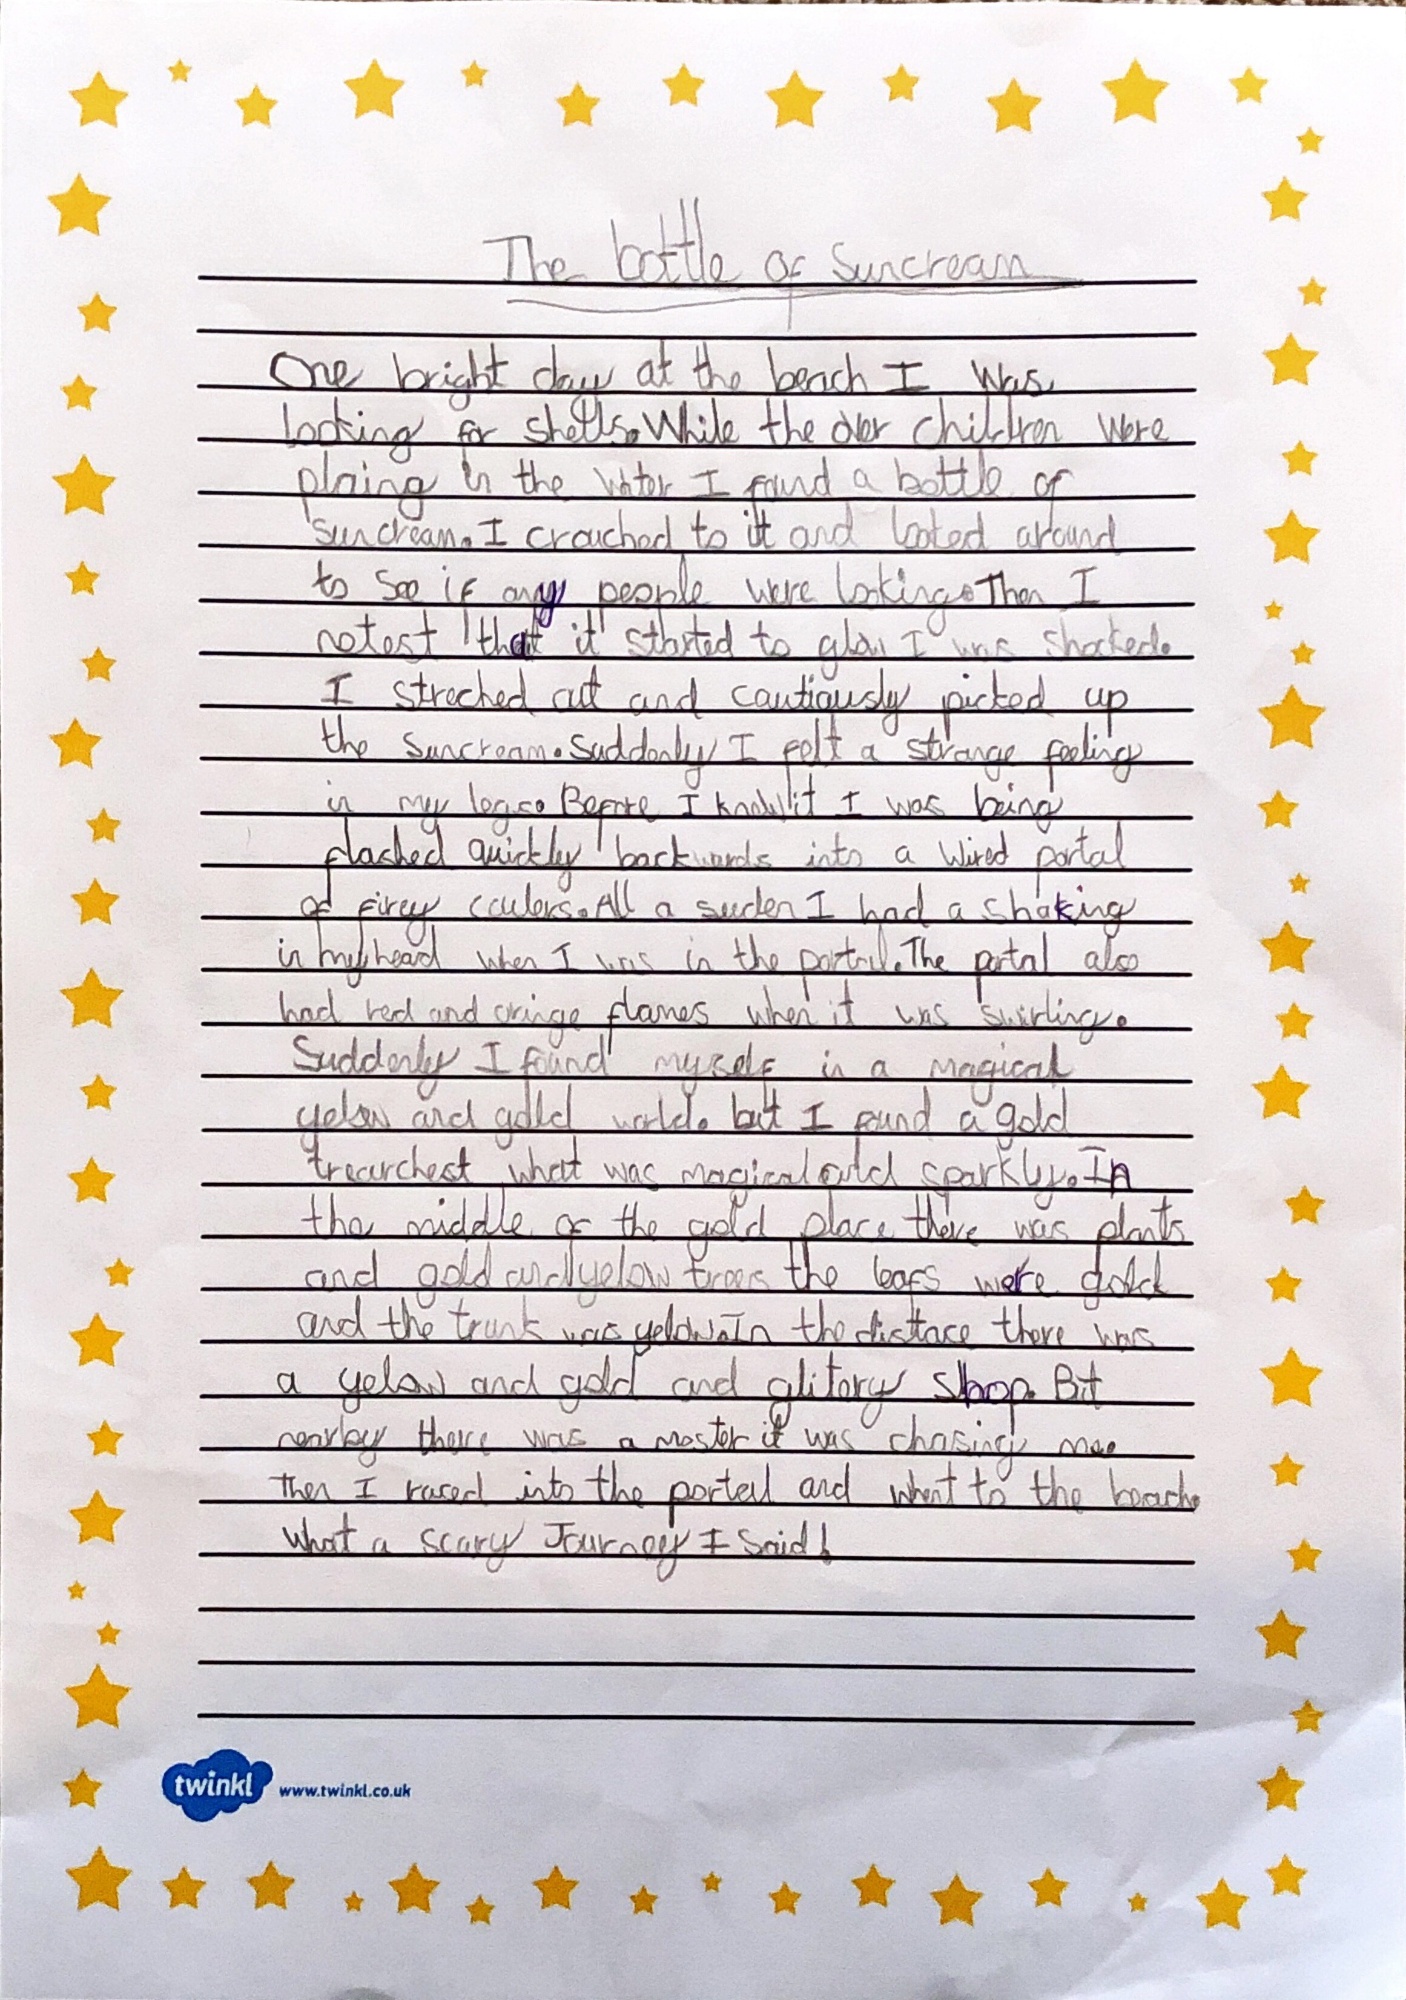 The bottle of Suncream
One bright day at the beach I was
looking for shells. While the over children were
plaing in the water I found a bottle of
suncream. I crouched to it and looked around
to see if any people were looking. Then I
notest that it started to glow I was shocked.
I streched out and cautiously picked up
the suncream. Suddenly I felt a strange feeling
in my legs. Before I know it I was being
flashed quickly backwards into a wired portal
of firey coulers. All a suden I had a shaking
in my head when I was in the portal. The portal also
had red and oringe flames when it was swirling.
Suddenly I found myself in a magical
yelow and gold world. but I found a gold
trearchest what was magical and sparkly. In
the middle of the gold place there was plants
and gold and yelow trees the leafs were gold
and the trunk was yelow. In the distace there was
a yelow and gold and glitory shop. But
nearby there was a moster it was chasing me.
Then I raced into the portal and whent to the beach.
What a scary Journey I said!
twinkl www.twinkl.co.uk